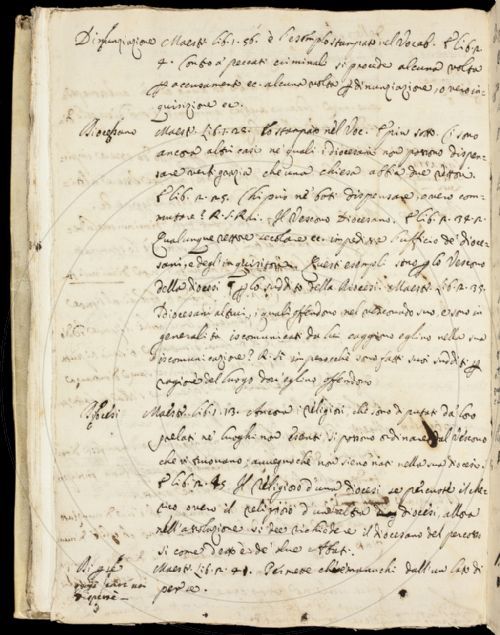 Dinunziazione Maestr. lib. 1. 56. è l'esemplo stampato nel Vocab. E lib. 2.
4. Contro a' peccati criminali si procede alcuna volta
accusamento ec. alcuna volta dinunziazione, o vero in-
quisizione ec.
Diocesano Maestr. lib. 1. 25. lo stampato nel Voc. E più sotto. Ci sono
ancora altri casi ne' quali i diocesani non possono dispen-
sare verbigrazia che una chiesa abbia due rettori.
E lib. 2. 25. Chi può ne' boti dispensare, o vero com-
mutare? R. Si. Il Vescovo Diocesano. E lib. 2. 34. 2.
Qualunque rettore secolare ec. impedisse l'ufficio de' dioce-
sani, e degli inquisitori. Questi esempli sono lo Vescovo
della diocesi lo suddito della Diocesi. Maestr. lib. 2. 35.
I diocesani altrui, i quali offendono nel vescovado suo, e sono in
generalità iscomunicati da lui caggiono eglino nella sua
iscomunicazione? R. Si imperocchè sono fatti suoi sudditi
ragione del luogo dov' eglino offendono
Diocesi Maestr. lib. 1. 13. Ancora i religiosi, che sono diputati da' loro
prelati ne' luoghi non esenti, si possono ordinare dal Vescovo
che vi truovano; avvegnachè non sieno nati nella sua diocesi.
E lib. 2. 45. Il religioso d'una diocesi se percuote il che-
rico ovvero il religioso d'un' altra diocesi, allora
nell' assoluzione si dee richiedere il diocesano del percosso
si come è detto de' due Abati.
Maestr. lib. 2. 41. Permette che manuchi dall' un lato di
per se.